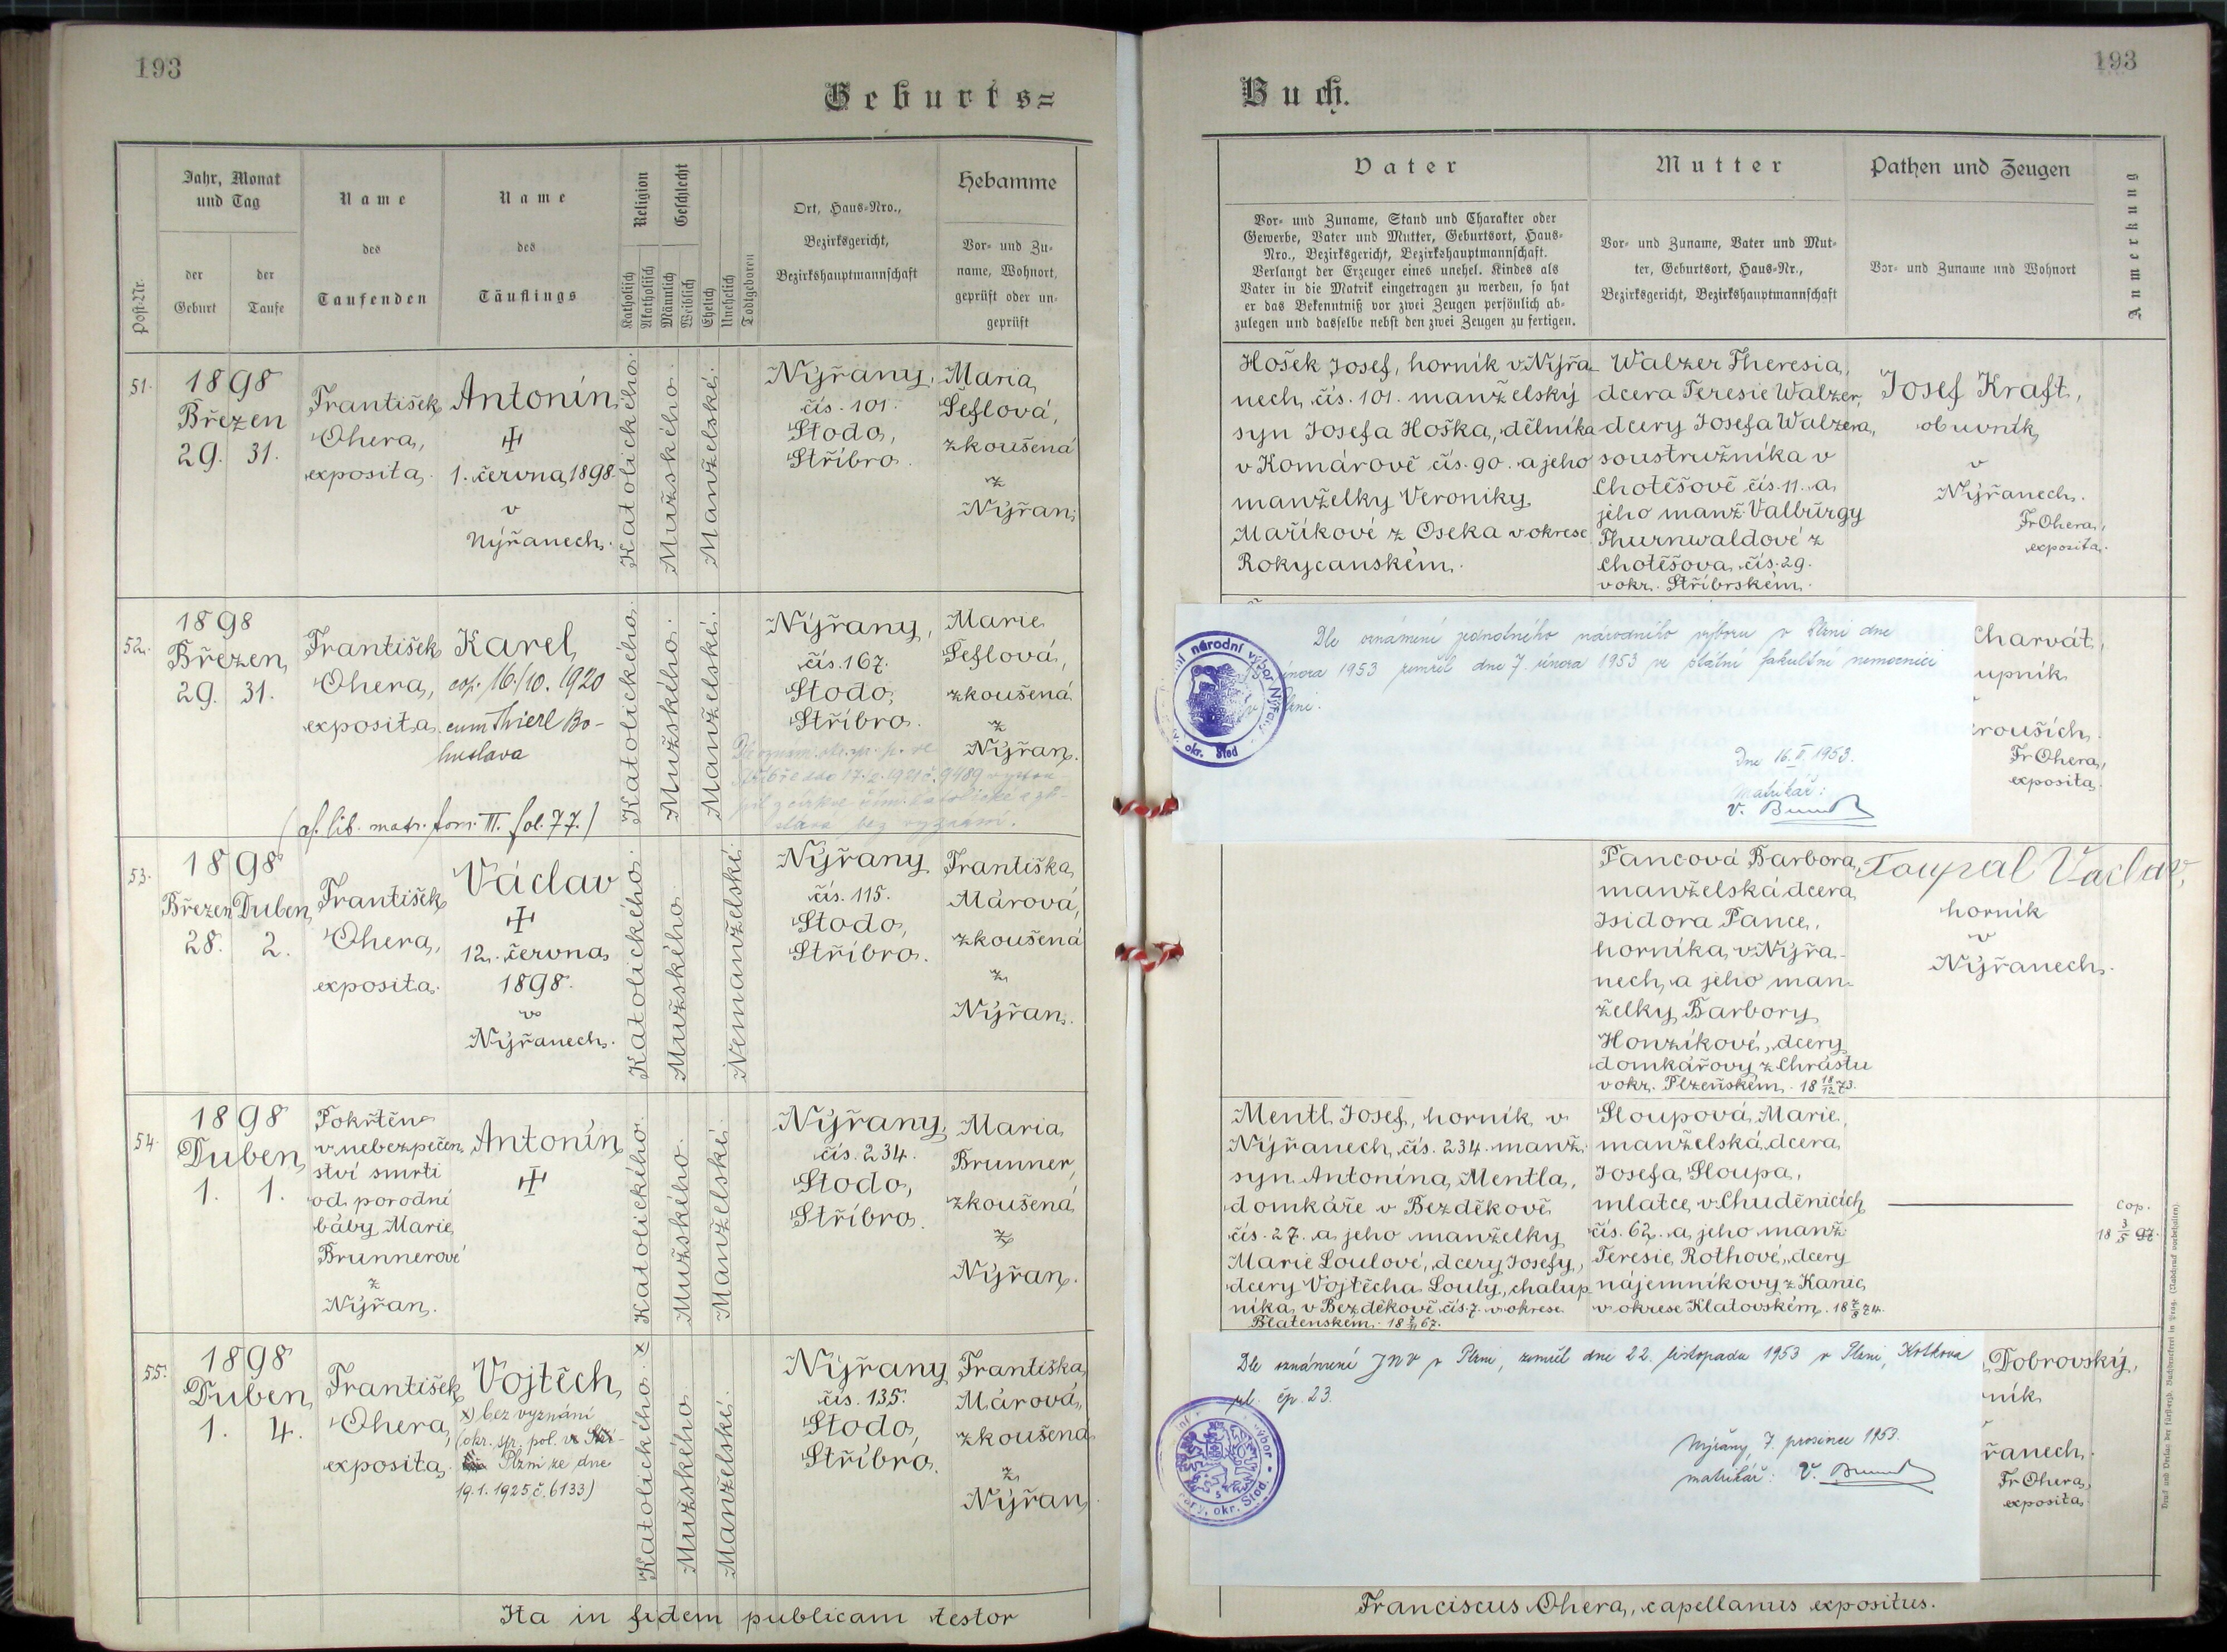 193
Geburts=
Jahr, Monat
und Tag
Name
Name
Religion
Geschlecht
Hebamme
Post-Nr.
der
Geburt
der
Taufe
des
Taufenden
des
Täuflings
Katholisch
Akatholisch
Männlich
Weiblich
Ehelich
Unehelich
Todtgeboren
Ort, Haus-Nro.,
Bezirksgericht,
Bezirkshauptmannschaft
Vor- und Zu-
name, Wohnort,
geprüft oder un-
geprüft
51.
1898
Březen
29. 31.
František
Ohera,
exposita.
Antonín
1. června 1898.
v
Nýřanech.
Katolického.
Mužského.
Manželské.
Nýřany,
čís. 101.
Stodo,
Stříbro.
Maria
Šeflová,
zkoušená
z
Nýřan.
52.
1898
Březen
29. 31.
František
Ohera,
exposita
Karel
cop. 16./10. 1920
cum Thierl Bo-
huslava
Katolického.
Mužského.
Manželské.
Nýřany,
čís. 167.
Stodo,
Stříbro.
Marie
Šeflová,
zkoušená
z
Nýřan.
53.
1898
Březen Duben
28. 2.
František
Ohera,
exposita.
Václav
12. června
1898.
v
Nýřanech.
Katolického.
Mužského.
Nemanželské.
Nýřany
čís. 115.
Stodo,
Stříbro.
Františka
Márová,
zkoušená
z
Nýřan.
54.
1898
Duben
1. 1.
Pokřtěn
v nebezpečen
ství smrti
od porodní
báby Marie
Brunnerové
z
Nýřan.
Antonín
Katolického.
Mužského.
Manželské.
Nýřany,
čís. 234.
Stodo,
Stříbro.
Maria
Brunner,
zkoušená
z
Nýřan.
55.
1898
Duben
1. 4.
František
Ohera,
exposita.
Vojtěch
x) bez vyznání
(okr. spr. pol. v
Plzni ze dne
19.1.1925 č. 6133)
Katolického. x
Mužského.
Manželské.
Nýřany
čís. 135.
Stodo,
Stříbro.
Františka
Márová,
zkoušená
z
Nýřan
Ita in fidem publicam testor
193
Buch.
Vater
Mutter
Pathen und Zeugen
Anmerkung
Vor- und Zuname, Stand und Charakter oder
Gewerbe, Vater und Mutter, Geburtsort, Haus-
Nro., Bezirksgericht, Bezirkshauptmannschaft.
Verlangt der Erzeuger eines unehel. Kindes als
Vater in die Matrik eingetragen zu werden, so hat
er das Bekenntniß vor zwei Zeugen persönlich ab-
zulegen und dasselbe nebst den zwei Zeugen zu fertigen.
Vor- und Zuname, Vater und Mut-
ter, Geburtsort, Haus-Nr.,
Bezirksgericht, Bezirkshauptmannschaft
Vor- und Zuname und Wohnort
Hošek Josef, horník v Nýřa-
nech, čís. 101. manželský
syn Josefa Hoška, dělníka
v Komárově čís. 90. a jeho
manželky Veroniky
Maříkové z Oseka v okrese
Rokycanském.
Walzer Theresia,
dcera Teresie Walzer,
dcery Josefa Walzera,
soustružníka v
Chotěšově čís. 11. a
jeho manž. Valburgy
Thurnwaldové z
Chotěšova, čís. 29.
v okr. Stříbrském.
Josef Kraft,
obuvník
v
Nýřanech.
Fr Ohera,
exposita.
Dle oznámení jednotného národního výboru v Plzni dne
února 1953 zemřel dne 7. února 1953 ve státní fakultní nemocnici
v Plzni.
Dne 16. II. 1953.
Matrikář:
národní výbor Nýřa
okr. Stod
Charvát,
upník
roušich.
Fr Ohera,
exposita.
Pancová Barbora,
manželská dcera
Isidora Pance,
horníka v Nýřa-
nech, a jeho man-
želky Barbory
Honzíkové, dcery
domkářovy z Chrástu
v okr. Plzeňském. 18 18/12 73.
Toupal Vaclav,
horník
v
Nýřanech.
Mentl Josef, horník v
Nýřanech, čís. 234. manž.
syn Antonína Mentla,
domkáře v Bezděkově
čís. 27. a jeho manželky
Marie Loulové, dcery Josefy,
dcery Vojtěcha Louly, chalup-
níka v Bezděkově čís. 7. v okrese
Blatenském.
Sloupová Marie,
manželská dcera
Josefa Sloupa,
mlatce v Chuděnicích
čís. 62. a jeho manž.
Teresie Rothové, dcery
nájemníkovy z Kanic
v okrese Klatovském.
cop.
18 3/5 97.
Dle oznámení JNV v Plzni, zemřel dne 22. listopadu 1953 v Plzni, Kotkova
ul. čp. 23.
Nýřany, 7. prosince 1953.
matrikář:
výbor
okr. Stod.
Dobrovský,
ník
řanech.
Fr Ohera,
exposita
Franciscus Ohera, capellanus expositus.